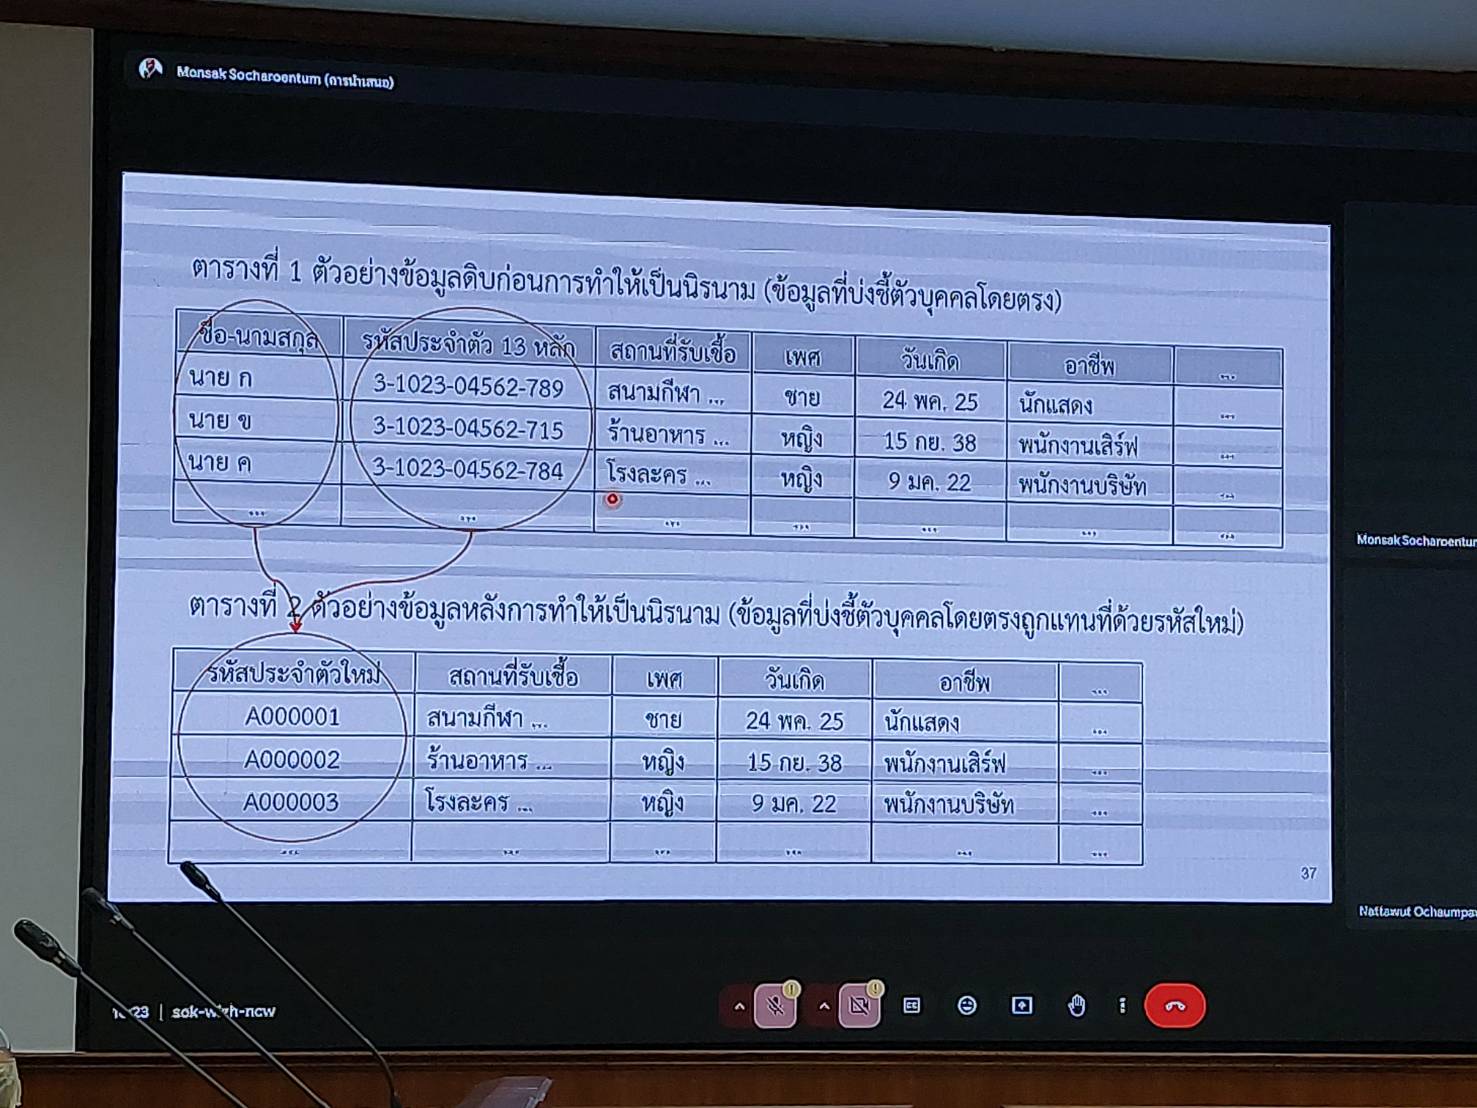 Monsak Socharoentum (การนำเสนอ)
ตารางที่ 1 ตัวอย่างข้อมูลดิบก่อนการทำให้เป็นนิรนาม (ข้อมูลที่บ่งชี้ตัวบุคคลโดยตรง)
ชื่อ-นามสกุล รหัสประจำตัว 13 หลัก สถานที่รับเชื้อ เพศ วันเกิด อาชีพ ...
นาย ก 3-1023-04562-789 สนามกีฬา ... ชาย 24 พค. 25 นักแสดง ...
นาย ข 3-1023-04562-715 ร้านอาหาร ... หญิง 15 กย. 38 พนักงานเสิร์ฟ ...
นาย ค 3-1023-04562-784 โรงละคร ... หญิง 9 มค. 22 พนักงานบริษัท ...
... ... ... ... ... ... ...
ตารางที่ 2 ตัวอย่างข้อมูลหลังการทำให้เป็นนิรนาม (ข้อมูลที่บ่งชี้ตัวบุคคลโดยตรงถูกแทนที่ด้วยรหัสใหม่)
รหัสประจำตัวใหม่ สถานที่รับเชื้อ เพศ วันเกิด อาชีพ ...
A000001 สนามกีฬา ... ชาย 24 พค. 25 นักแสดง ...
A000002 ร้านอาหาร ... หญิง 15 กย. 38 พนักงานเสิร์ฟ ...
A000003 โรงละคร ... หญิง 9 มค. 22 พนักงานบริษัท ...
... ... ... ... ... ...
37
Monsak Socharoentum
Nattawut